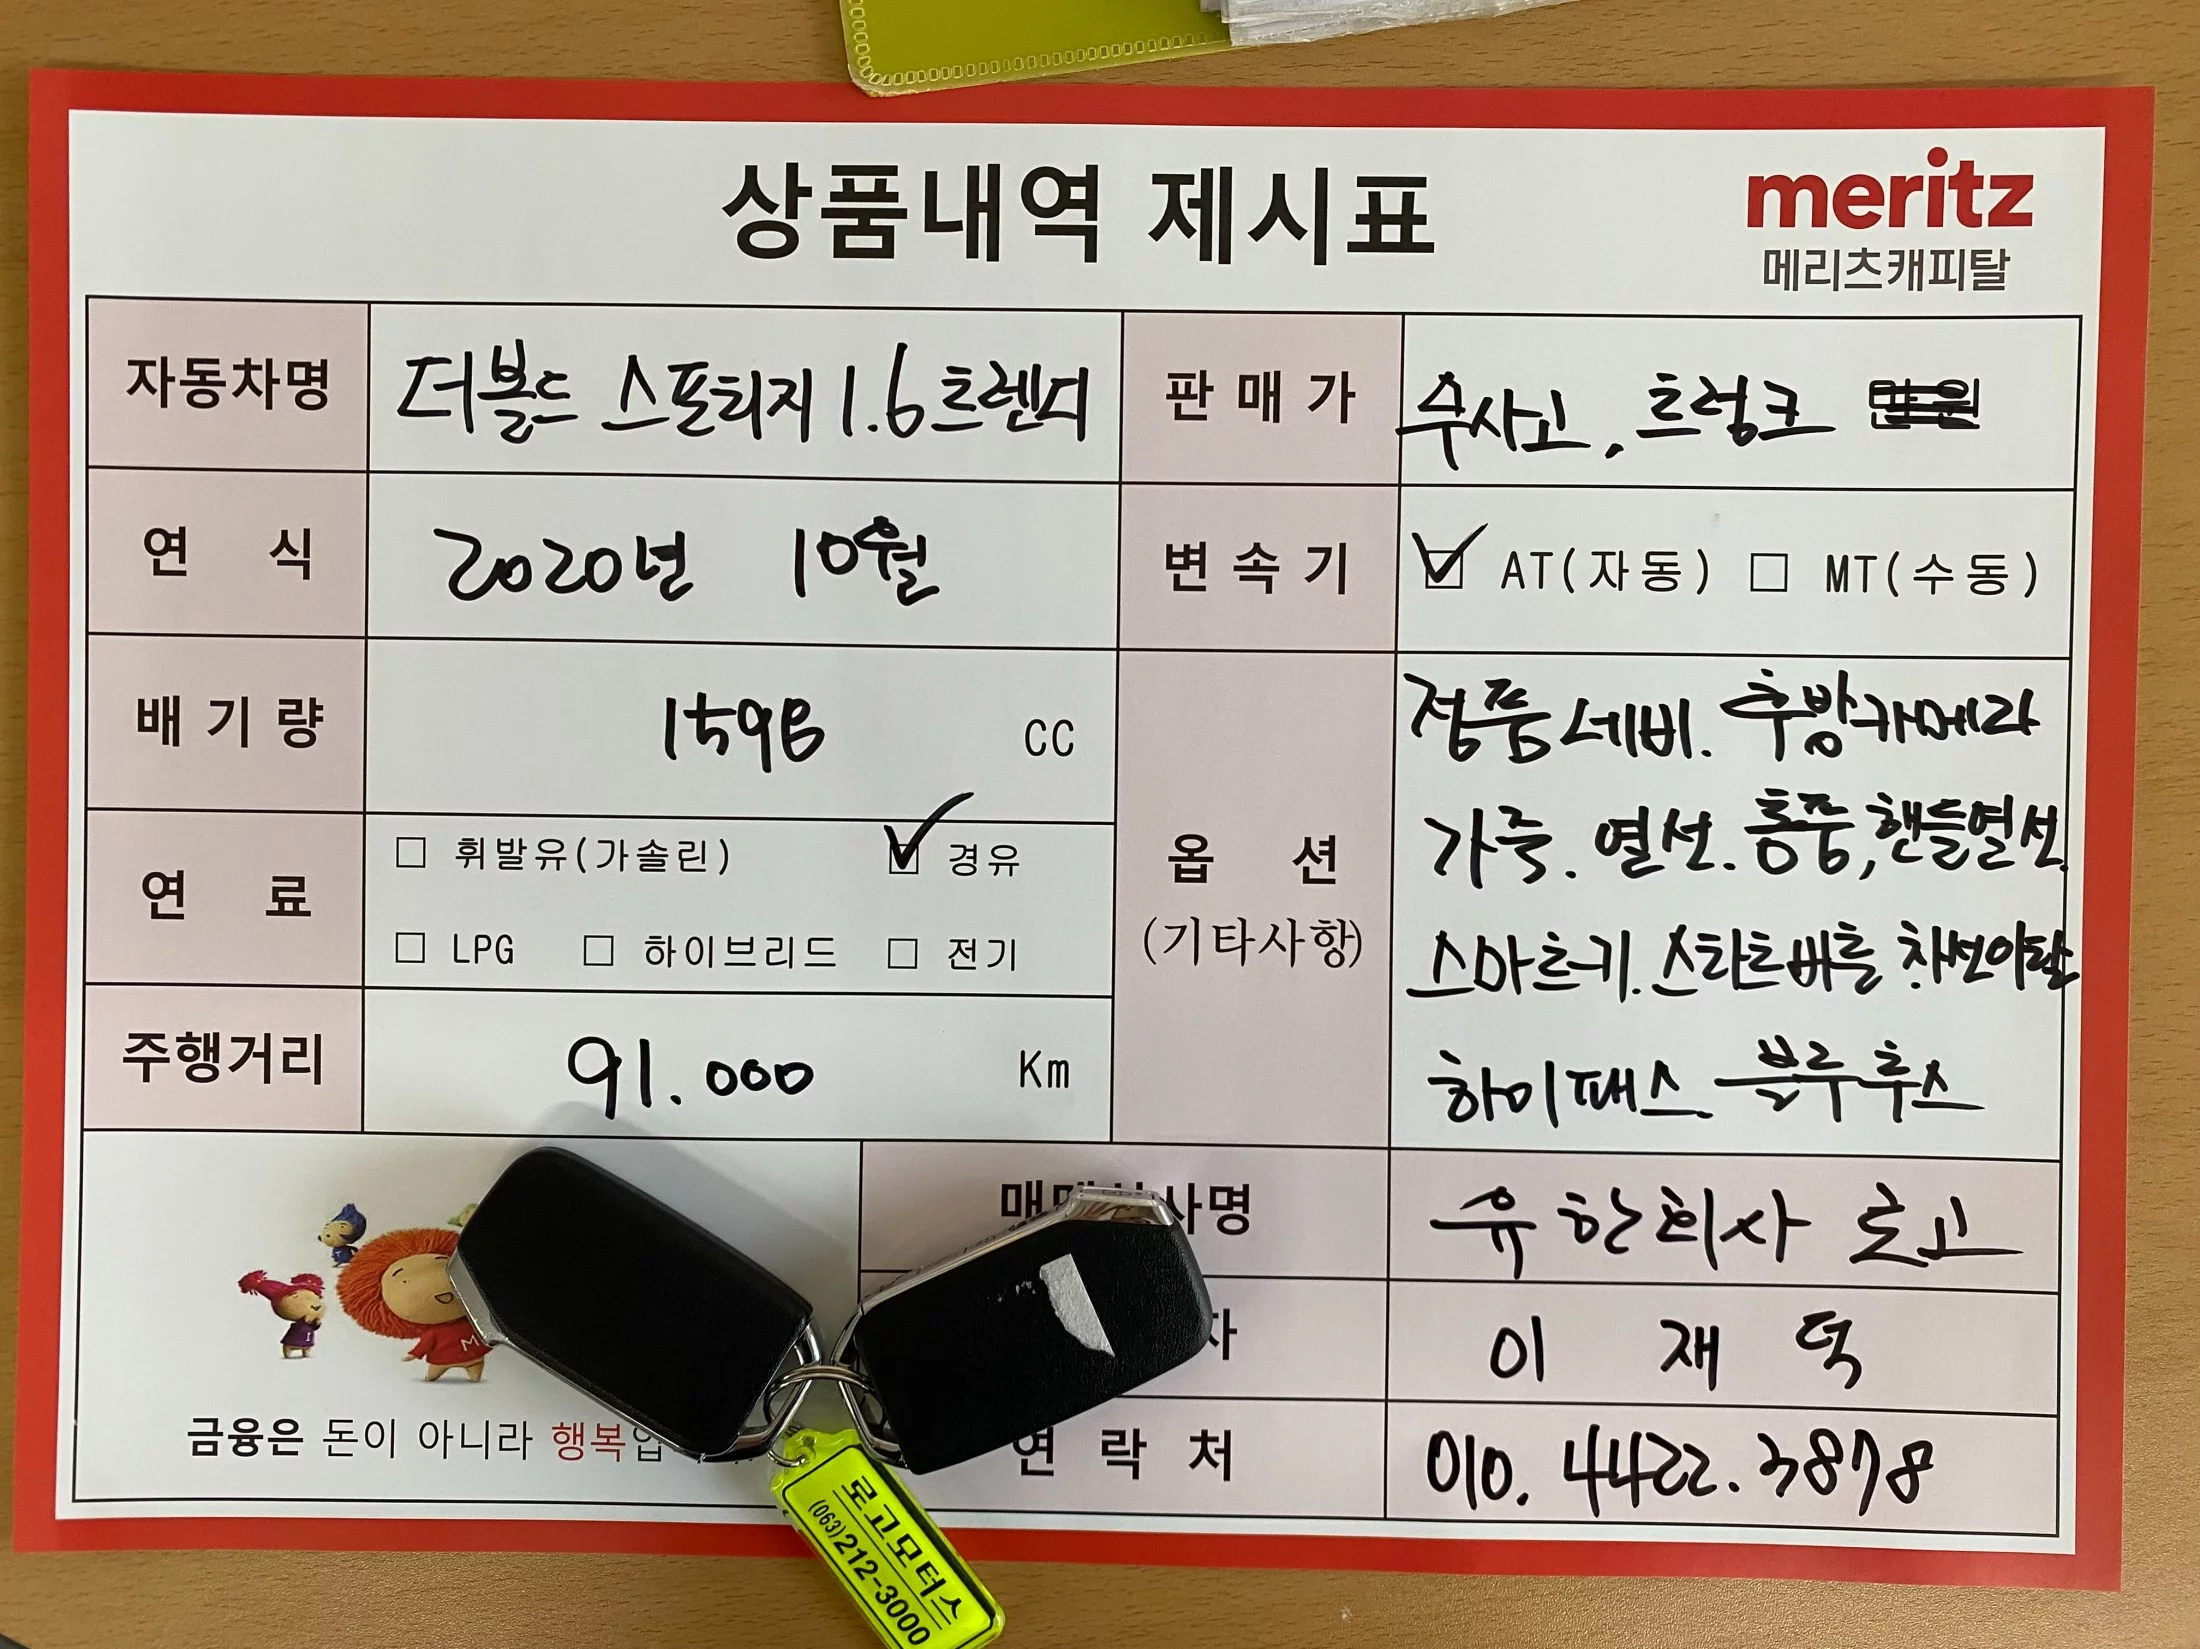 상품내역 제시표
meritz
메리츠캐피탈
자동차명 더볼드 스포티지 1.6 트렌디
판매가 무사고, 트렁크 만원
연식 2020년 10월
변속기 ☑ AT(자동) □ MT(수동)
배기량 1598 CC
연료 □ 휘발유(가솔린) ☑ 경유
□ LPG □ 하이브리드 □ 전기
주행거리 91.000 Km
옵션
(기타사항)
정품네비. 후방카메라
가죽. 열선. 통풍, 핸들열선.
스마트키. 스타트버튼 차선이탈
하이패스 블루투스
유한회사 로고
이재덕
연락처 010. 4422. 3878
금융은 돈이 아니라 행복입
로고모터스
(063)212-3000